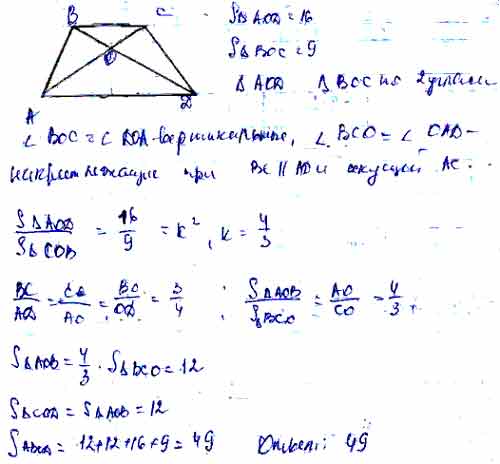 B C
O
A D
S△AOD = 16
S△BOC = 9
△ AOD △ BOC по 2 углам
∠ BOC = ∠ DOA - вертикальные, ∠ BCO = ∠ OAD -
накрест лежащие при BC || AD и секущей AC.
S△AOD / S△COB = 16/9 = k², k = 4/3
BC/AD = CO/AO = BO/OD = 3/4 ; S△AOB / S△BCO = AO/CO = 4/3.
S△AOB = 4/3 · S△BCO = 12
S△COD = S△AOB = 12
SABCD = 12+12+16+9 = 49 Ответ: 49